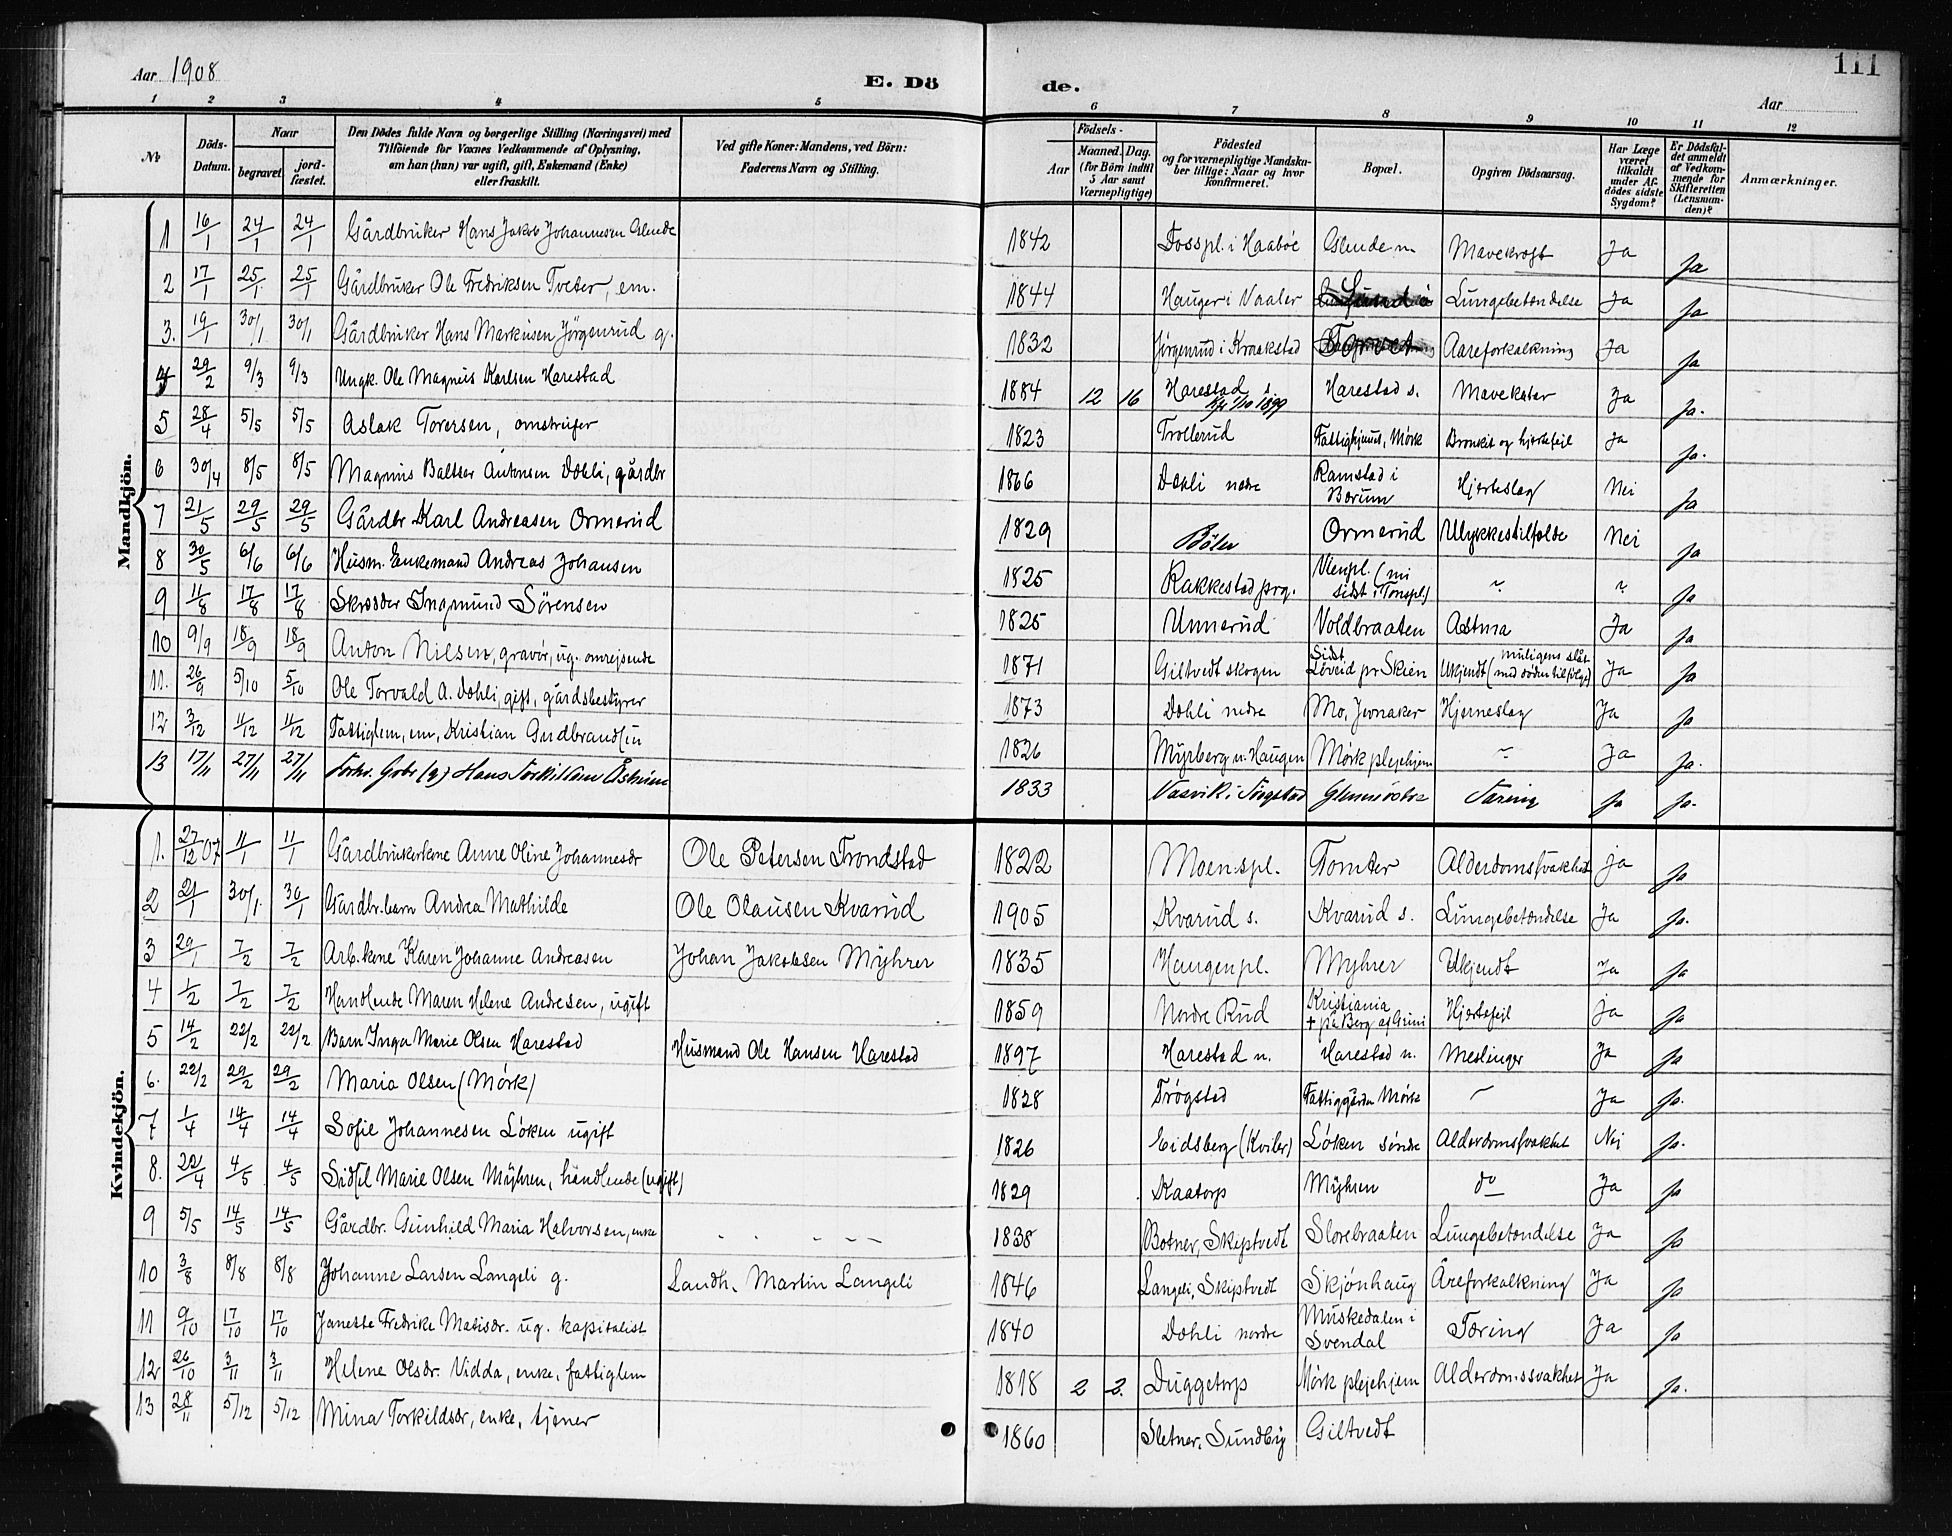 Aar 1908
E. Döde.
111
Aar
1 2 3 4 5 6 7 8 9 10 11 12
No
Döds-Datum.
Naar
begravet
jord-fæstet.
Den Dödes fulde Navn og borgerlige Stilling (Næringsvei) med Tilföiende for Voxnes Vedkommende af Oplysning, om han (hun) var ugift, gift, Enkemand (Enke) eller fraskilt.
Ved gifte Koner: Mandens, ved Börn: Faderens Navn og Stilling.
Födsels-
Aar
Maaned. Dag.
(for Börn indtil 5 Aar samt Værnepligtige)
Födested og for værnepligtige Mandskaber tillige: Naar og hvor konfirmeret.
Bopæl.
Opgiven Dödsaarsag.
Har Læge været tilkaldt under Afdödes sidste Sygdom?
Er Dödsfaldet anmeldt af Vedkommende for Skifteretten (Lensmanden)?
Anmærkninger.
Mandkjön.
1 16/1 24/1 24/1 Gårdbruker Hans Jakob Johannesen Glende 1842 Fosspl. i Haabøe Glende n. Mavekræft Ja Ja
2 17/1 25/1 25/1 Gårdbruker Ole Fredriksen Tveter, em. 1844 Hauger i Vaaler Lungebetændelse Ja Ja
3. 19/1 30/1 30/1 Gårdbruker Hans Markusen Jørgenrud g. 1832 Jørgenrud i Kraakstad Aareforkalkning Ja Ja
4 29/2 9/3 9/3 Ungk. Ole Magnus Karlsen Harestad 1884 12 16 Harestad s. Kfr 1/10 1899 Harestad s. Mavekatar Ja Ja.
5 28/4 5/5 5/5 Aslak Torersen, omstreifer 1823 Trollerud Fattighjem, Mørk Bronkit og hjertefeil Ja Ja.
6 30/4 8/5 8/5 Magnus Baltser Antonsen Dæhli, gårdbr 1866 Dæhli nedre Ramstad i Bærum Hjerteslag Nei Ja
7 21/5 29/5 29/5 Gårdbr Karl Andreasen Ormerud 1829 Bøler Ormerud Ulykkestilfælde Nei Ja
8 30/5 6/6 6/6 Husm. Enkemand Andreas Johansen 1825 Rakkestad prg. Vlenpl. (nu sidst i Tonspl) " " Ja
9 11/8 17/8 17/8 Skræder Ingmund Sørensen 1825 Unnerud Voldbraaten Astma Ja Ja
10 9/9 18/9 18/9 Anton Nilsen, gravør, ug. omreisende 1871 Giltvedtskogen Sidst Løveid pr Skien Ukjendt (muligens slåt med døden tilfølge) Ja Ja
11. 26/9 5/10 5/10 Ole Torvald A. Dæhli, gift, gårdsbestyrer 1873 Dæhli nedre Mo, Jevnaker Hjerneslag Ja Ja
12 3/12 11/12 11/12 Fattiglem, em, Kristian Gudbrandsen 1826 Myrberg u. Haugen Mørk plejehjem " Ja Ja.
13 17/11 27/11 27/11 Forhv. Gbr (g) Hans Torkilsen 1833 Vasvik i Trøgstad Tæring Ja Ja.
Kvindekjön.
1. 27/12 07 11/1 11/1 Gårdbrukerkone Anne Oline Johannesdr Ole Petersen Trondstad 1822 Moenspl. Tomter Alderdomssvakhet Ja Ja
2 21/1 30/1. 30/1 Gårdbr.barn Andrea Mathilde Ole Olausen Kvarud 1905 Kvarud s. Kvarud s. Lungebetændelse Ja Ja.
3 29/1 7/2 7/2 Arb.kone Karen Johanne Andreasen Johan Jakobsen Myhrer 1835 Haugenpl. Myhrer Ukjendt Ja Ja
4 1/2 7/2 7/2 Handlende Maren Helene Andresen, ugift 1859 Nordre Rud Kristiania + på Berg af Grini Hjertefejl Ja Ja
5 14/2 22/2 22/2 Barn Inga Marie Olsen Harestad Husmand Ole Hansen Harestad 1897 Harestad n. Harestad n. Meslinger Ja Ja
6. 22/2 29/2 29/2 Maria Olsen (Mørk) 1828 Trøgstad Fattiggården Mørk " Ja Ja.
7 1/4 14/4 14/4 Sofie Johannesen Løken ugift 1826 Eidsberg (Kviler) Løken søndre Alderdomssvakhet Nej Ja.
8. 22/4 4/5 4/5 Sidsel Marie Olsen Myhren, handlende (ugift) 1829 Kaatorp Myhren do Ja Ja
9 5/5 14/5 14/5 Gårdbr. Gunhild Maria Halvorsen, enke 1838 Botner, Skiptvedt Slorebraaten Lungebetændelse Ja Ja
10 3/8 8/8 8/8 Johanne Larsen Langeli g. Landh. Martin Langeli 1846 Langeli, Skiptvedt Skjønhaug Åreforkalkning Ja Ja
11 9/10 17/10 17/10 Janette Fredrike Matisdr. ug. kapitalist 1840 Dæhli nordre Muskedalen i Svendal Tæring Ja Ja
12 26/10 3/11 3/11 Helene Olsdr. Vidda, enke, fattiglem 1818 2 2. Duggetorp Mørk plejehjem Alderdomssvakhet Ja Ja.
13 28/11 5/12 5/12 Mina Torkildsdr, enke, tjener 1860 Sletner, Sundby Giltvedt